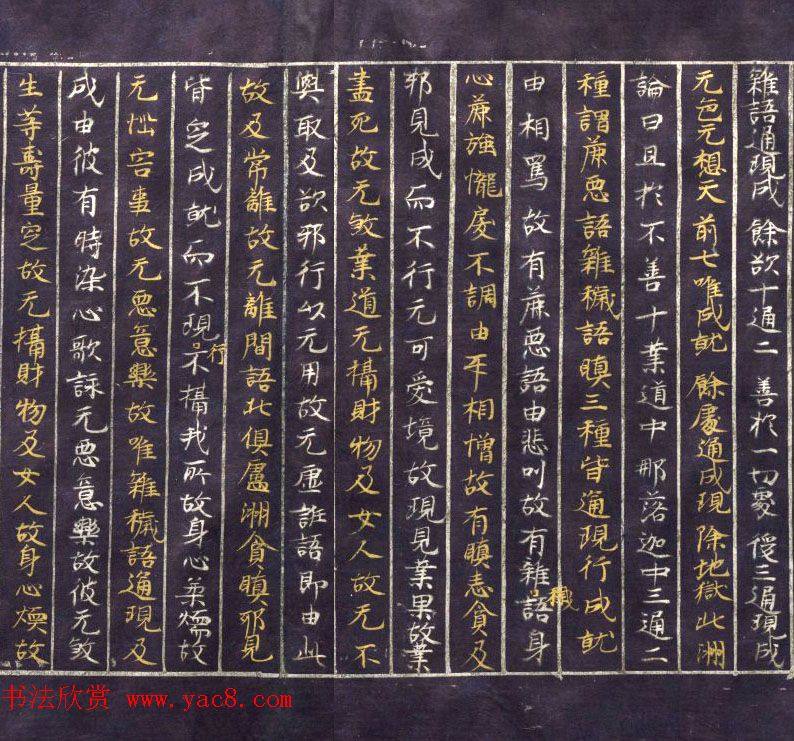 雜語通現成 餘欲十通二 善於一切處 後三通現成
无色无想天 前七唯成就 餘處通成現 除地獄北洲
論曰且於不善十業道中那落迦中三通二
種謂麁惡語雜穢語瞋三種皆通現行成就
由相罵故有麁惡語由悲叫故有雜穢語身
心麁強㦬悷不調由互相憎故有瞋恚貪及
邪見成而不行无可愛境故現見業果故業
盡死故无殺業道无攝財物及女人故无不
與取及欲邪行以无用故无虛誑語即由此
故及常離故无離間語北俱盧洲貪瞋邪見
皆定成就而不現行不攝我所故身心柔㬉故
无惱害事故无惡意樂故唯雜穢語通現及
成由彼有時染心歌詠无惡意樂故彼无殺
生等壽量定故无攝財物及女人故身心㬉故
书法欣赏 www.yac8.com